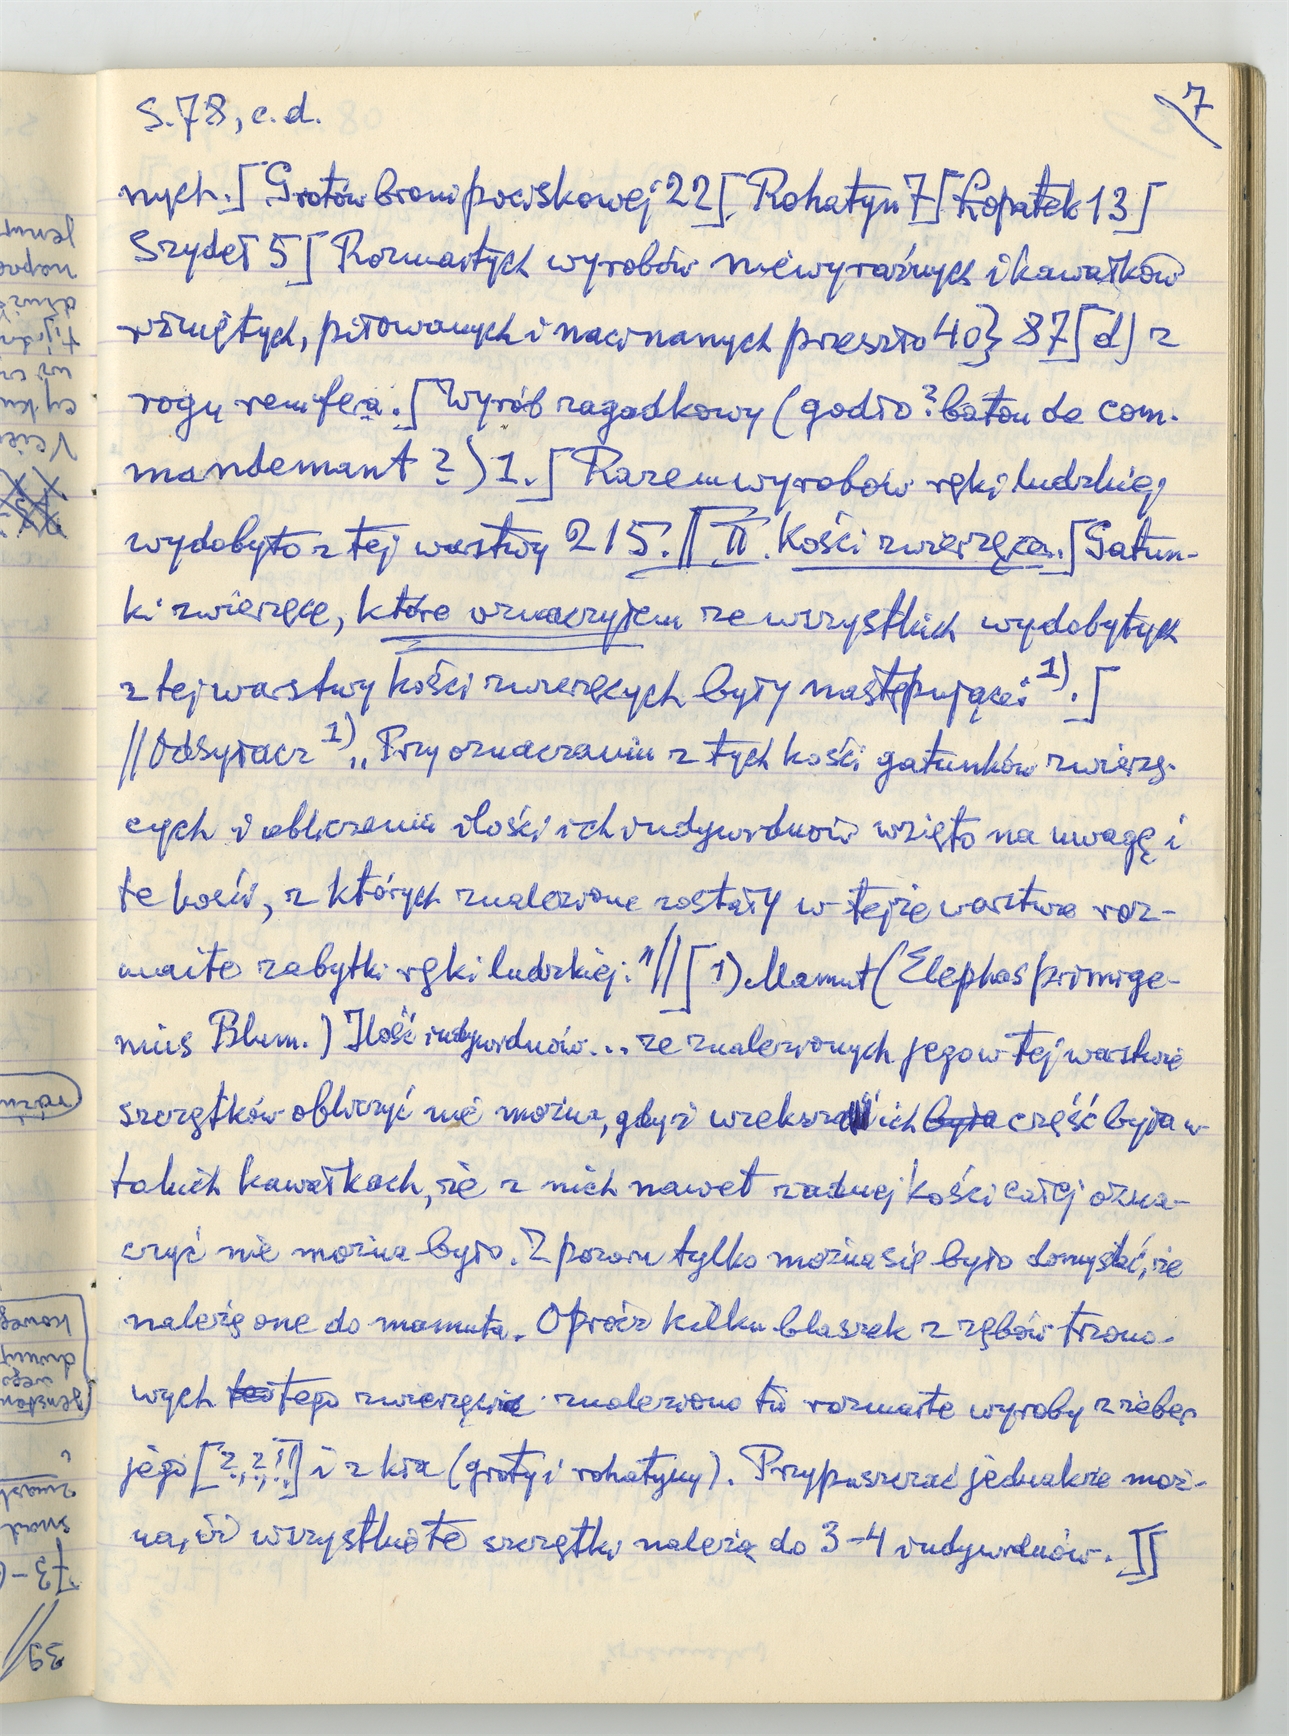 S. 78, c.d.
7
nych.[ Grotów broni pociskowej 22[ Rohatyn 7[ Łopatek 13[
Szydeł 5[ Rozmaitych wyrobów niewyraźnych i kawałków
rżniętych, piłowanych i nacinanych przeszło 40} 87[ d) z
rogu renifera.[ Wyrób zagadkowy (godło? baton de com-
mandemant ?) 1.[ Razem wyrobów ręki ludzkiej
wydobyto z tej warstwy 215.[[ II. Kości zwierzęce.[ Gatun-
ki zwierzęce, które oznaczyłem ze wszystkich wydobytych
z tej warstwy kości zwierzęcych były następujące: 1).[
// Odsyłacz 1) „Przy oznaczaniu z tych kości gatunków zwierzę-
cych i obliczeniu ilości ich indywiduów wzięto na uwagę i
te kości, z których znalezione zostały w tejże warstwie roz-
maite zabytki ręki ludzkiej." // [ 1) Mamut (Elephas primige-
nius Blum.) Ilość indywiduów... ze znalezionych jego w tej warstwie
szczątków obliczyć nie można, gdyż większa ich była część była w
takich kawałkach, że z nich nawet żadnej kości całej ozna-
czyć nie można było. Z pozoru tylko można się było domyślać, że
należą one do mamuta. Oprócz kilku blaszek z zębów trzono-
wych tego zwierzęcia znaleziono tu rozmaite wyroby z żeber
jego [?,?!!] i z kła (groty i rohatyny). Przypuszczać jednakże moż-
na, iż wszystkie te szczątki należą do 3-4 indywiduów. ]]
39
73-